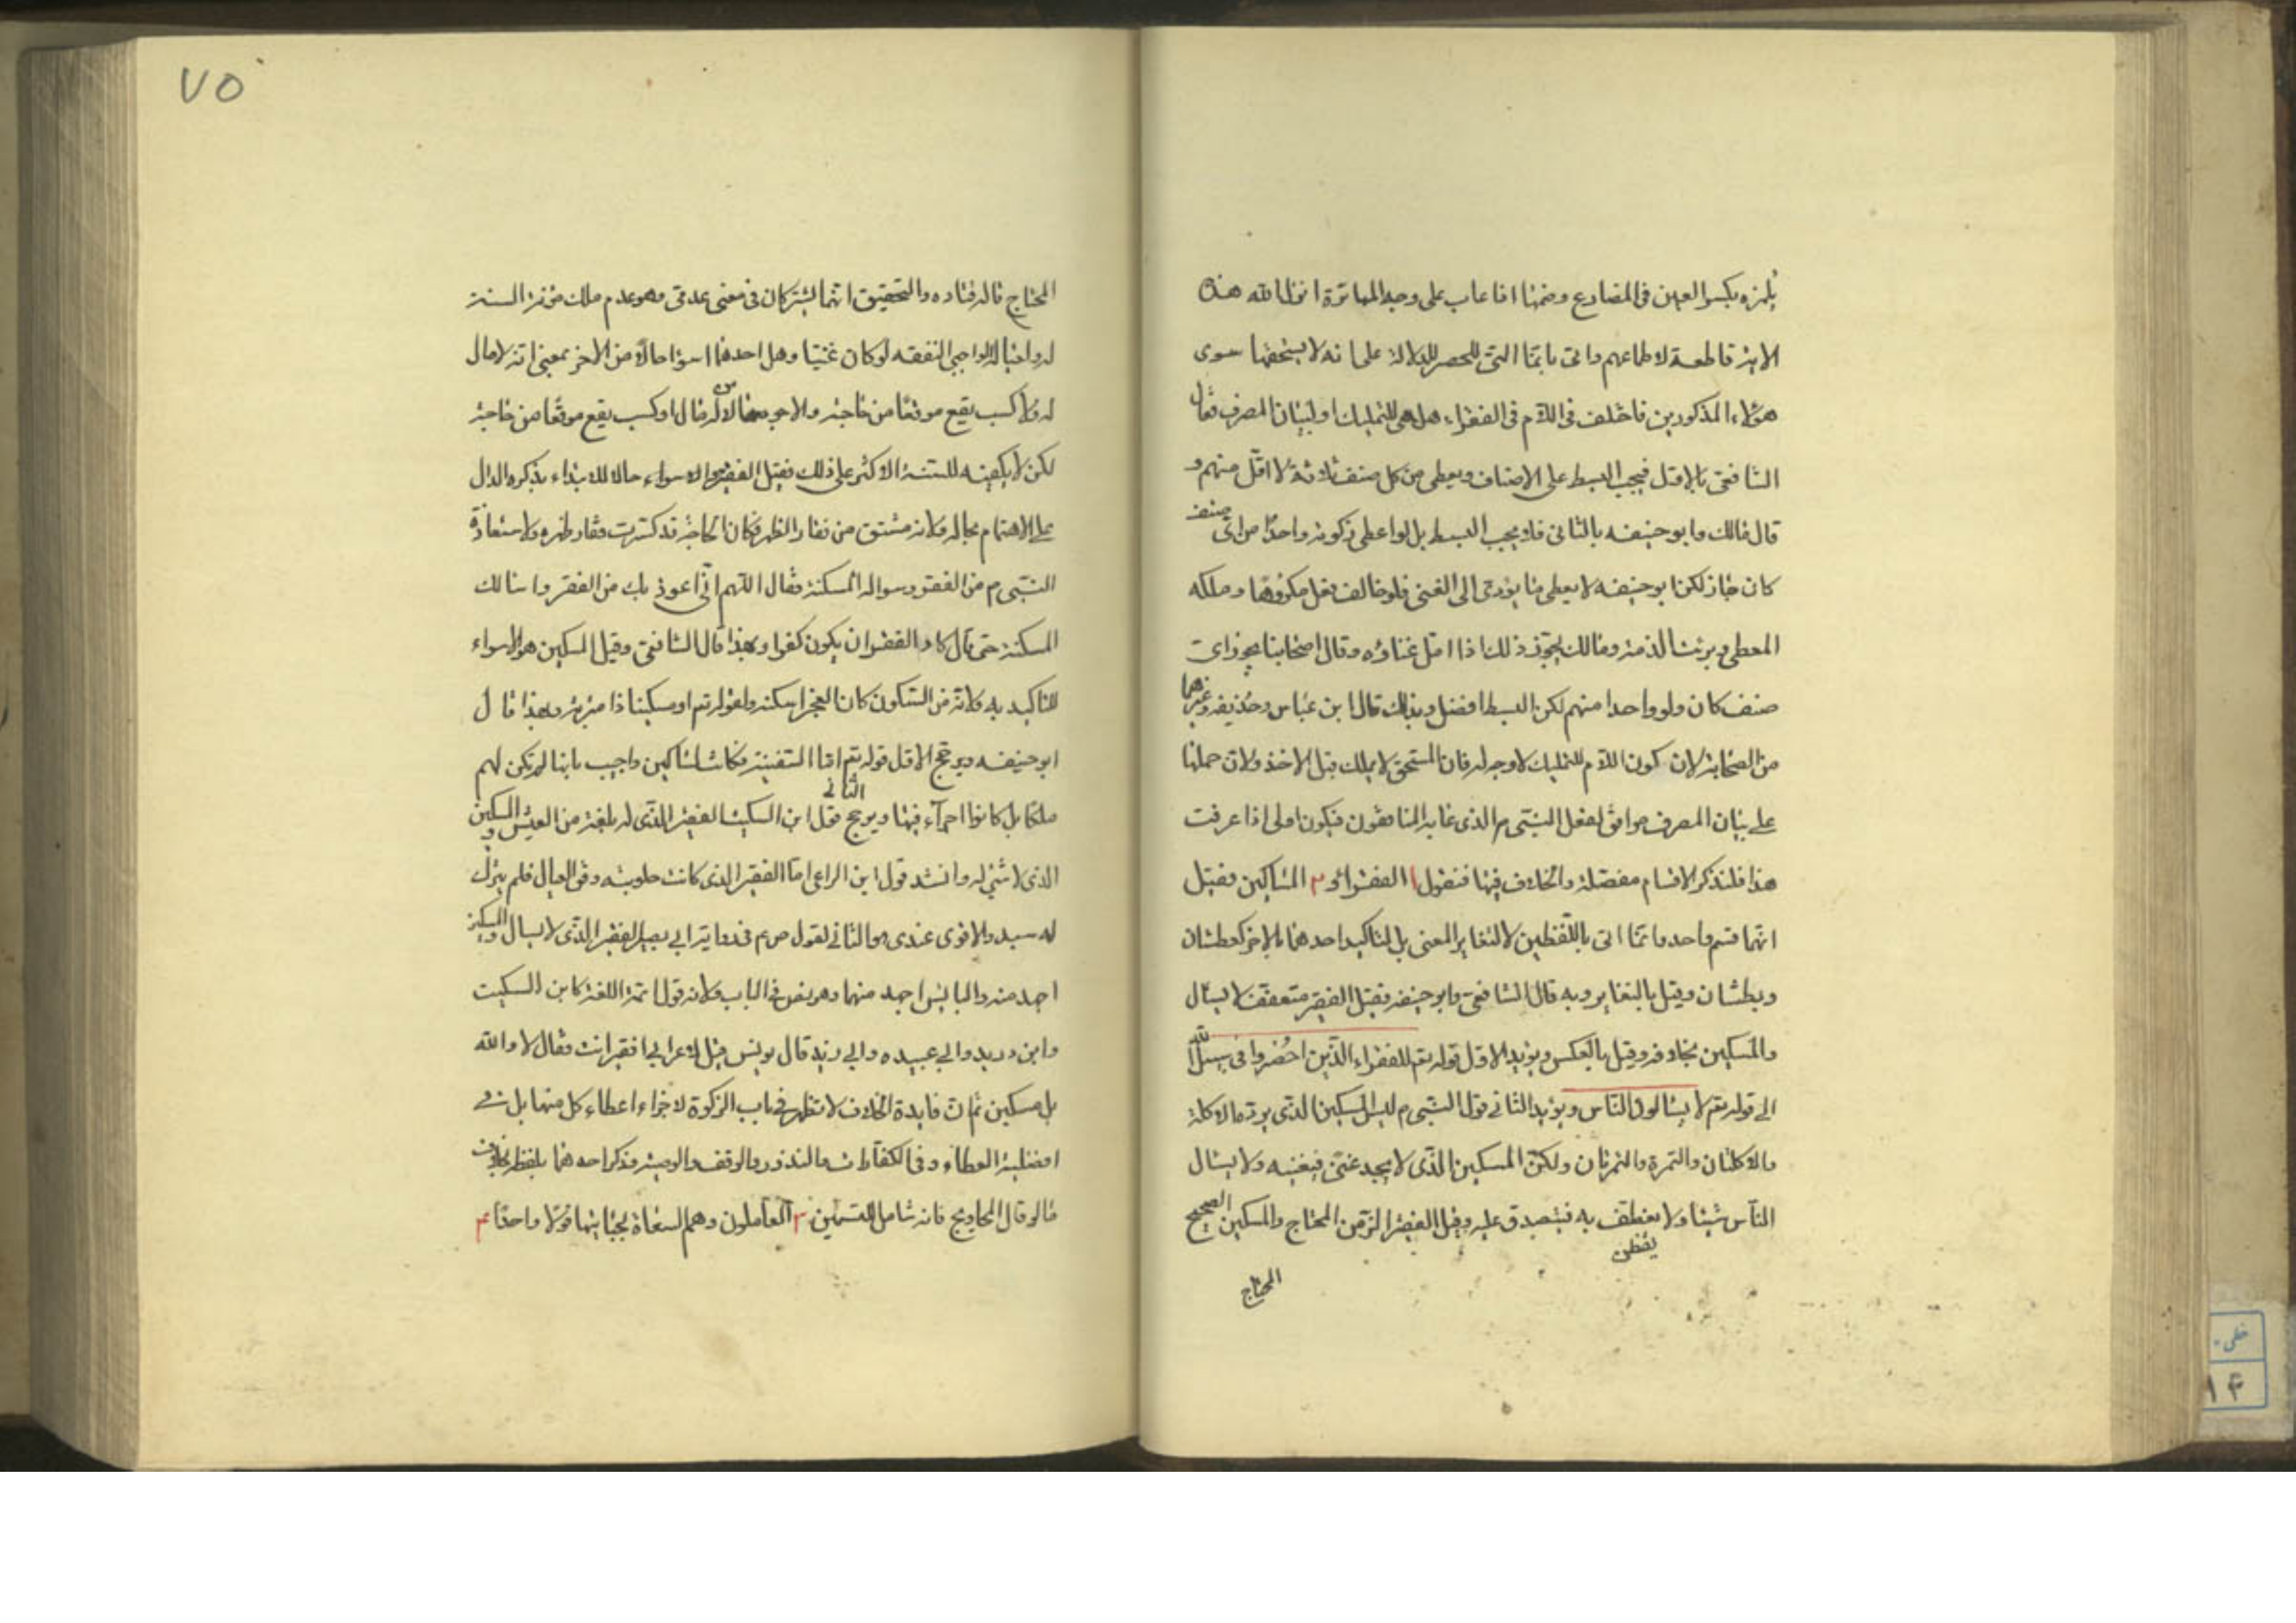 يلمزه بكسر العين فى المضارع وضمها اذا عاب على وجه المهاترة انزل الله هذه
الاية قاطعة لاطماعهم واتى بانما التى للحصر للدلالة على انه لا يستحقها سوى
هؤلاء المذكورين فاختلف فى اللام فى الفقراء هل هى للتمليك او لبيان المصرف فقال
الشافعى بالاول فيجب البسط على الاصناف ويعطى من كل صنف ثلاثة لا اقل منهم و
قال مالك وابو حنيفه بالثانى فلا يجب البسط بل لو اعطى زكوته واحدا من اى صنف
كان جاز لكن ابو حنيفه لا يعطى ما يؤدى الى الغنى فلو خالف فعل مكروها وملكه
المعطى وبرئت الذمة ومالك يجوز ذلك اذا امل غناؤه وقال اصحابنا يجوز اى
صنف كان ولو واحدا منهم لكن البسط افضل وبذلك قال ابن عباس وحذيفه وغيرهما
من الصحابة لان كون اللام للتمليك لا وجه له فان المستحق لا يملك قبل الاخذ ولان حملها
على بيان المصرف موافق لفعل النبى م الذى عابه المنافقون فيكون اولى اذا عرفت
هذا فلنذكر الاقسام مفصلة والخلاف فيها فنقول ا الفقراء و ٢ المساكين فقيل
انهما قسم واحد وانما اتى باللفظين لا لتغاير المعنى بل لتاكيد احدهما بالاخر كعطشان
وبطشان وقيل بالتغاير وبه قال الشافعى وابو حنيفه فقيل الفقير متعفف لا يسال
والمسكين بخلافه وقيل بالعكس ويؤيد الاول قوله تعم للفقراء الذين احضروا فى سبيل الله
الى قوله تعم لا يسالون الناس ويؤيد الثانى قول النبى م ليس المسكين الذى يرده الاكلة
والاكلتان والتمرة والتمرتان ولكن المسكين الذى لا يجد غنى فيغنيه ولا يسال
الناس شيئا ولا يعطف به فيتصدق عليه وقيل الفقير الزمن المحتاج والمسكين الصحيح
يفطن
المحتاج
٧٥
المحتاج قاله قتاده والتحقيق انهما يشتركان فى معنى عدمى وهو عدم ملك مؤنة السنة
له ولعياله الواجبى النفقه لو كان غنيا وهل احدهما اسؤا حالا من الاخر بمعنى انه لا مال
له ولا كسب يقع موقعا من حاجته والاخر له مال او كسب يقع موقعا من حاجته
لكن لا يكفيه للسنة الاكثر على ذلك فقيل الفقير هو الاسواء حالا للابتداء بذكره الدال
على الاهتمام بحاله ولانه مشتق من فقار الظهر فكان الحاجة قد كسرت فقار ظهره ولاستعاذة
النبى م من الفقر وسواله المسكنة فقال اللهم انى اعوذ بك من الفقر واسالك
المسكنة حتى قال كاد الفقر ان يكون كفرا وبهذا قال الشافعى وقيل المسكين هو الاسواء
للتاكيد به ولانه من السكون كان العجز اسكنه ولقوله تعم او مسكينا ذا متربة وبهذا قال
ابو حنيفه ويرجح الاول قوله تعم اما السفينة فكانت لمساكين واجيب بانها لم تكن لهم
ملكا بل كانوا اجراء فيها ويرجح الثانى قول ابن السكيت الفقير الذى له بلغة من العيش والمسكين
الذى لا شئ له وانشد قول ابن الراعى اما الفقير الذى كانت حلوبته وفق العيال فلم يترك
له سبد والاقوى عندى هو الثانى لقول ص م فى رواية ابى بصير الفقير الذى لا يسال والمسكين
اجهد منه والبايس اجهد منهما وهو نص فى الباب ولانه قول ائمة اللغة كابن السكيت
وابن دريد وابى عبيده وابى زيد قال يونس قيل لاعرابى افقير انت فقال لا والله
بل مسكين ثم ان فايدة الخلاف لا تظهر فى باب الزكوة لاجزاء اعطاء كل منهما بل فى
افضلية العطاء وفى الكفارات والنذور والوقف والوصية وذكر احدهما بلفظه بخلاف
ما لو قال المحاويج فانه شامل للقسمين ٣ العاملون وهم السعاة لجبايتها قولا واحدا ٤